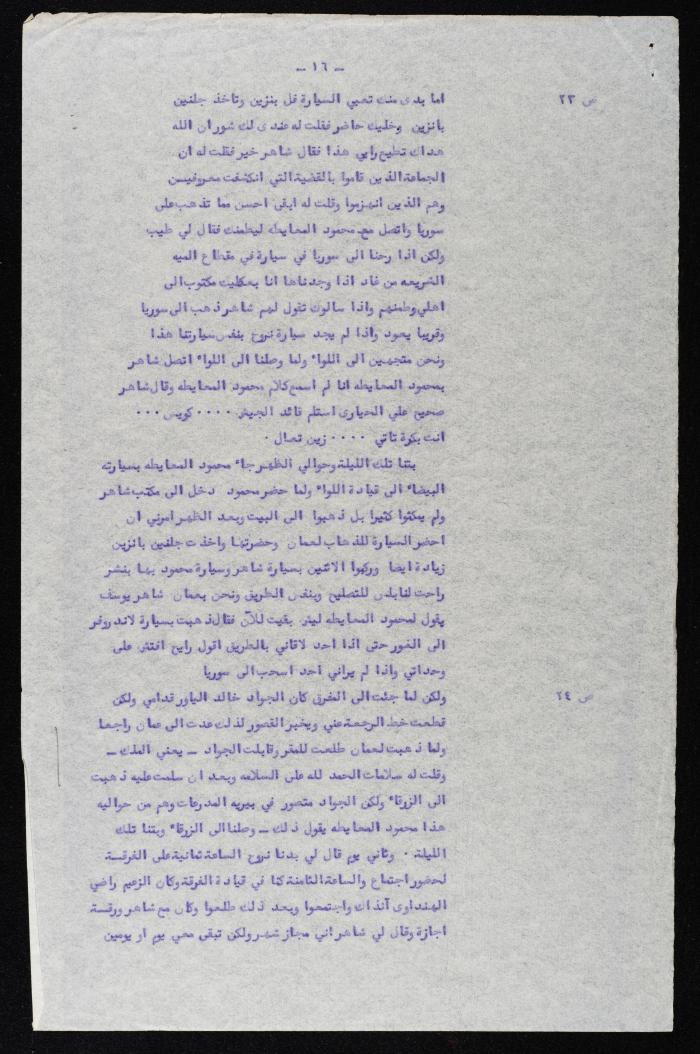 — ١٦ —
ص ٢٣
اما بدى منك تعبي السيارة فل بنزين وتاخذ جلنين
بانزين وخليك حاضر فقلت له عندى لك شور ان الله
هداك تطيع رابي هذا فقال شاهر خير فقلت له ان
الجماعة الذين قاموا بالقضية التي انكشفت معروفيسن
وهم الذين انهزموا وقلت له ابقى احسن مما تذهب على
سوريا واتصل مع محمود المعايطه ليطمنك فقال لي طيب
ولكن اذا رحنا الى سوريا في سيارة في مقطاع الميه
الشريعه من غاد اذا وجدناها انا بعطيك مكتوب الى
اهلي وطمنهم واذا سالوك تقول لهم شاهر ذهب الى سوريا
وقريبا يعود واذا لم يجد سيارة نروح بنفس سيارتنا هذا
ونحن متجهين الى اللواء ولما وصلنا الى اللواء اتصل شاهر
بمحمود المعايطه انا لم اسمع كلام محمود المعايطه وقال شاهر
صحيح علي الحيارى استلم قائد الجيش ٠٠٠٠ كويس ٠٠٠
انت بكرة تاتي ٠٠٠٠ زين تعال ٠
بتنا تلك الليلة وحوالي الظهر جاء محمود المعايطه بسيارته
البيضاء الى قيادة اللواء ولما حضر محمود دخل الى مكتب شاهر
ولم يمكثوا كثيرا بل ذهبوا الى البيت وبعد الظهر امرني ان
احضر السيارة للذهاب لعمان وحضرتها واخذت جلنين بانزين
زيادة ايضا وركبوا الاثنين بسيارة شاهر وسيارة محمود بها بنشر
راحت لنابلس للتصليح وبنفس الطريق ونحن بعمان شاهر يوسف
يقول لمحمود المعايطه ليش بقيت للآن فقال ذهبت بسيارة لاندروفر
الى الغور حتى اذا احد لاقاني بالطريق اقول رايح افتش على
وحداتي واذا لم يراني احد اسحب الى سوريا
ص ٢٤
ولكن لما جئت الى المفرق كان الجواد خالد الياور قدامي ولكن
قطعت خط الرجعة عني ويخبر القصور لذلك عدت الى عمان راجعا
ولما ذهبت لعمان طلعت للمقر وقابلت الجواد — يعني الملك —
وقلت له سلامات الحمد لله على السلامه وبعد ان سلمت عليه ذهبت
الى الزرقاء ولكن الجواد متصور في بيريه المدرعات وهم من حواليه
هذا محمود المعايطه يقول ذلك — وصلنا الى الزرقاء وبتنا تلك
الليلة ٠ وثاني يوم قال لي بدنا نروح الساعة ثمانية على الفرقسة
لحضور اجتماع والساعة الثامنة كنا في قيادة الفرقة وكان الزعيم راضي
الهنداوى آنذاك واجتمعوا وبعد ذلك طلعوا وكان مع شاهر ورقسة
اجازة وقال لي شاهر اني مجاز شهر ولكن تبقى معي يوم او يومين